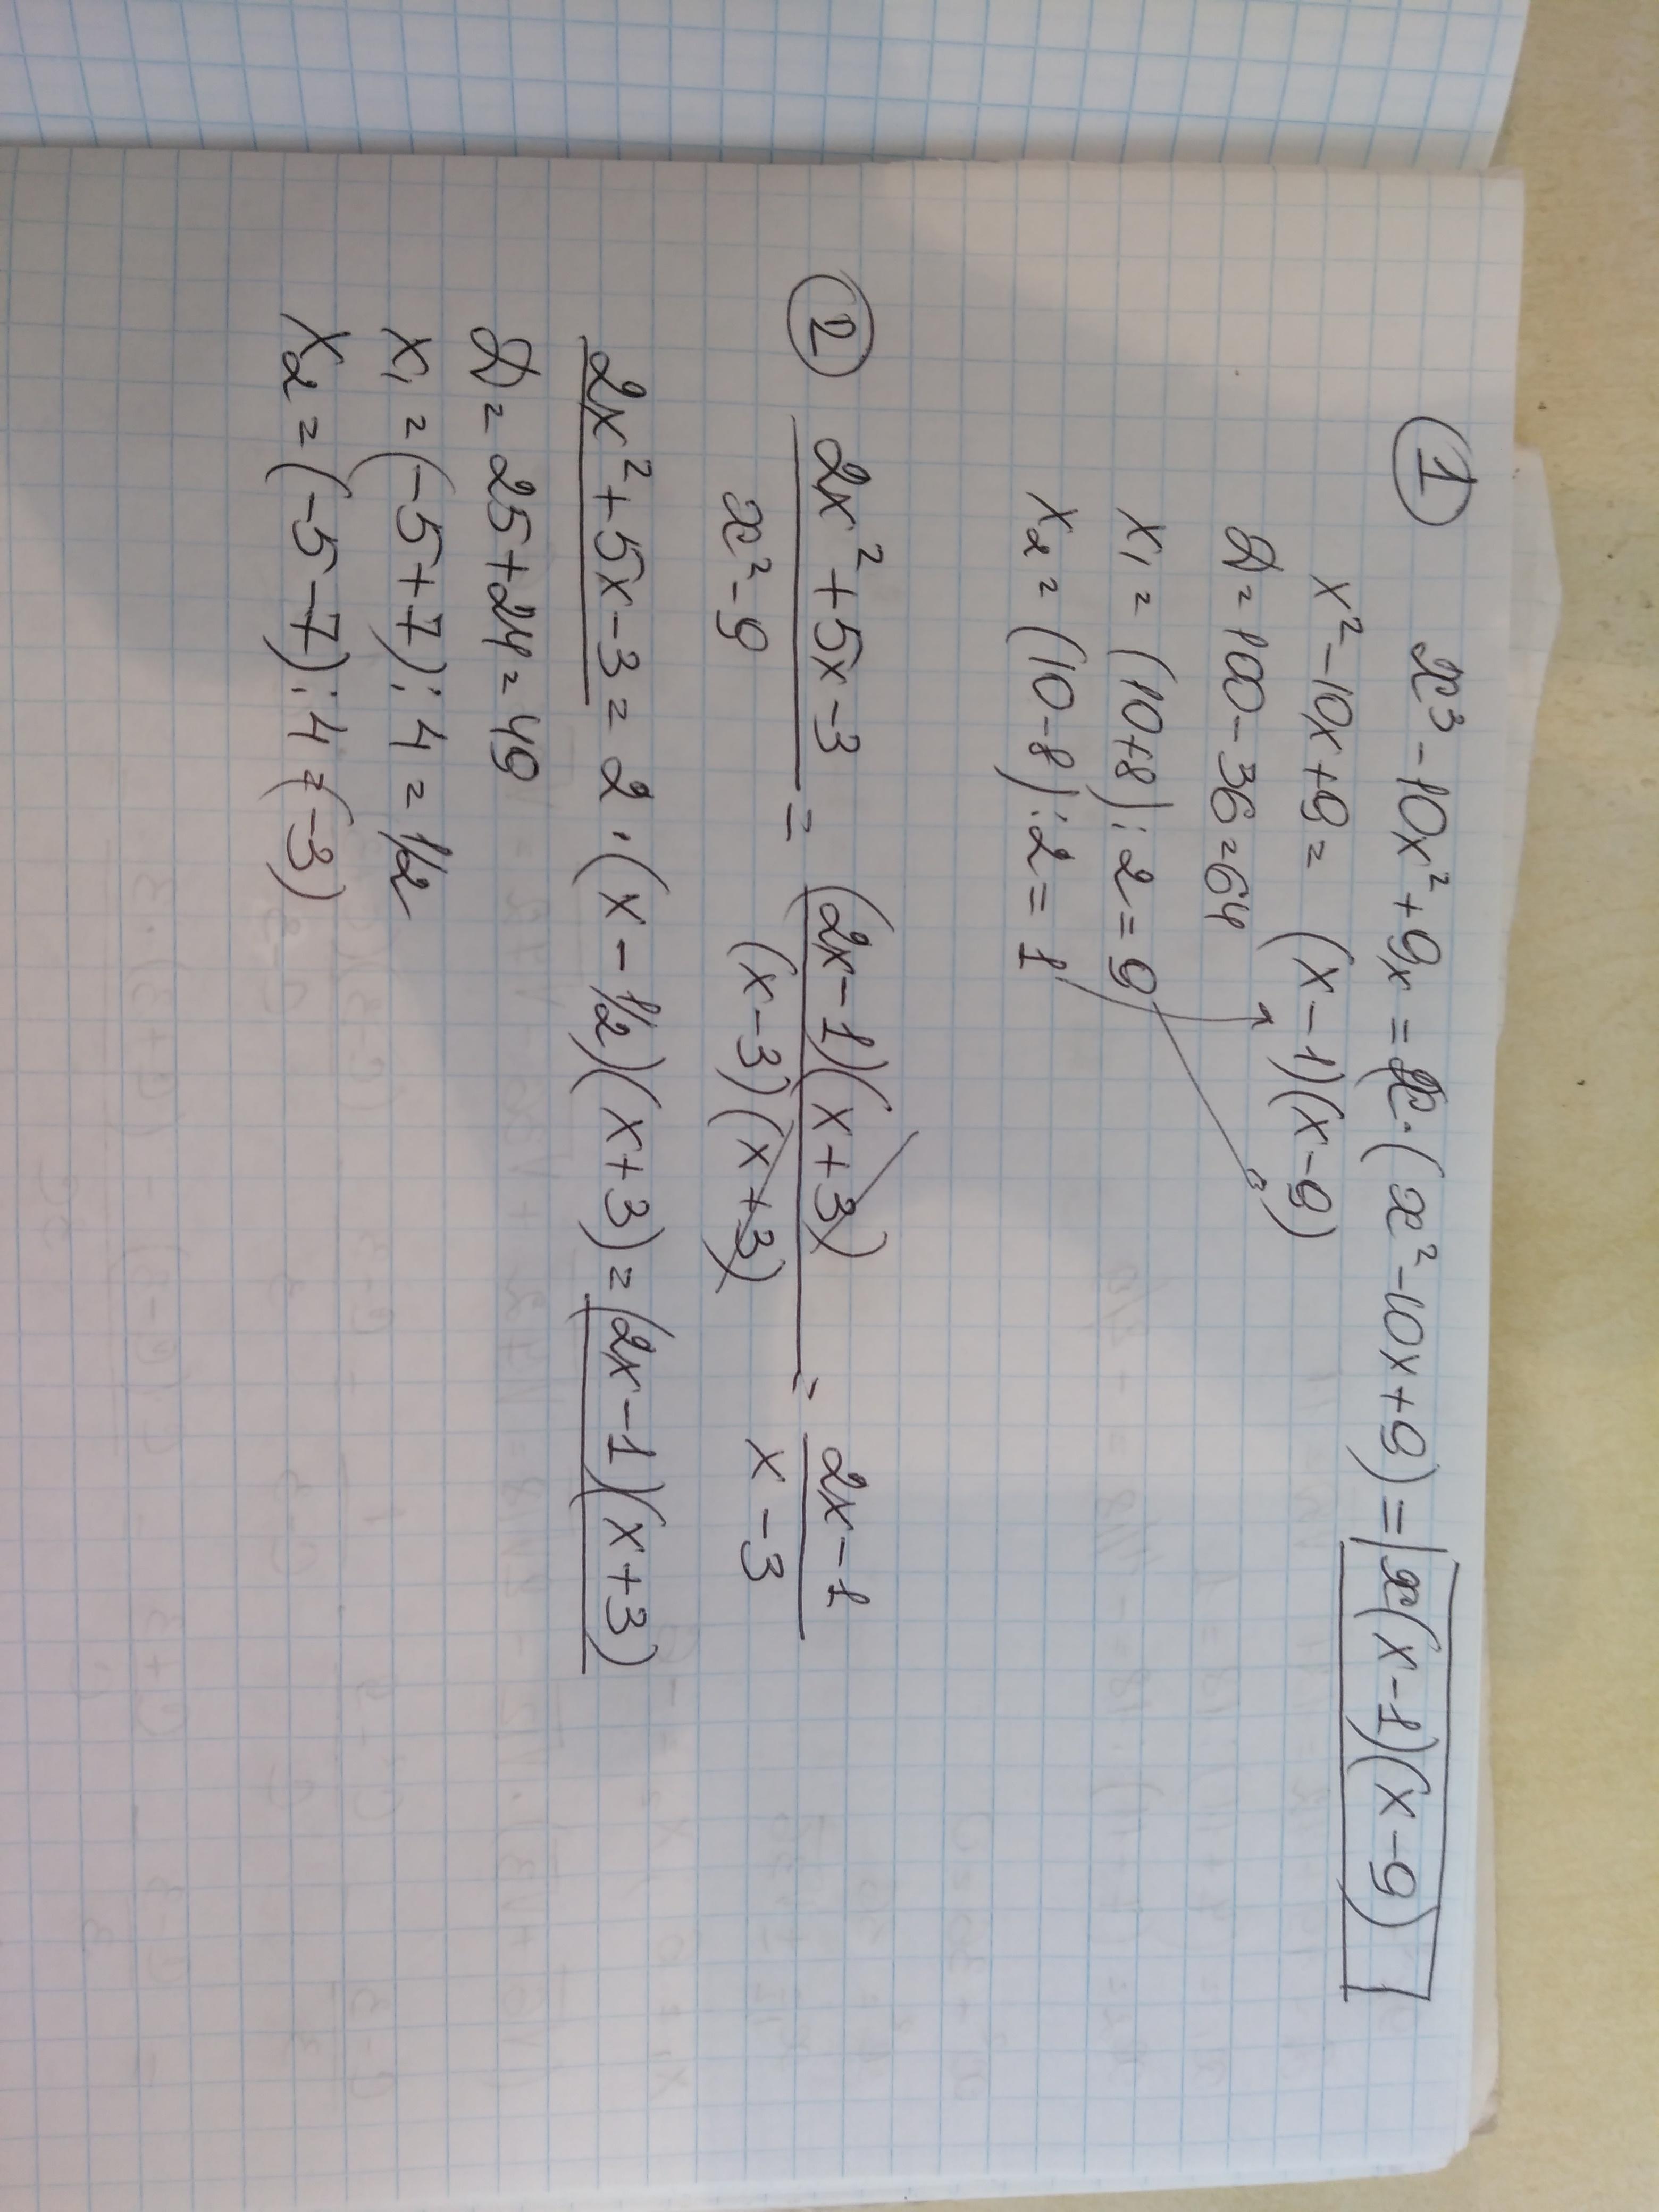 ① x³ - 10x² + 9x = x · (x² - 10x + 9) = x(x - 1)(x - 9)
x² - 10x + 9 = (x - 1)(x - 9)
D = 100 - 36 = 64
x₁ = (10 + 8) : 2 = 9
x₂ = (10 - 8) : 2 = 1
② (2x² + 5x - 3)/(x² - 9) = ((2x - 1)(x + 3))/((x - 3)(x + 3)) = (2x - 1)/(x - 3)
2x² + 5x - 3 = 2 · (x - 1/2)(x + 3) = (2x - 1)(x + 3)
D = 25 + 24 = 49
x₁ = (-5 + 7) : 4 = 1/2
x₂ = (-5 - 7) : 4 = (-3)